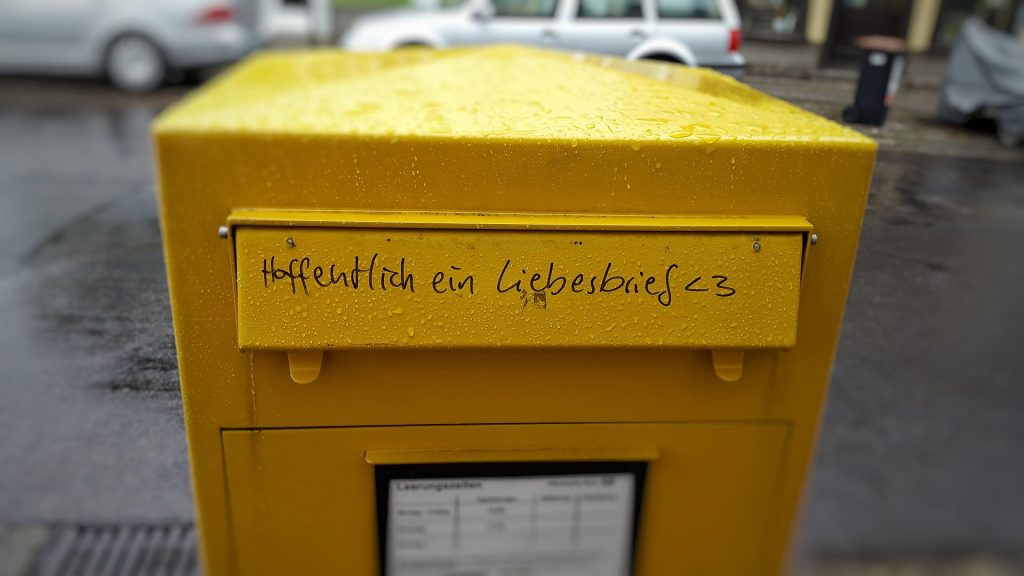 Hoffentlich ein Liebesbrief <3
Leerungszeiten